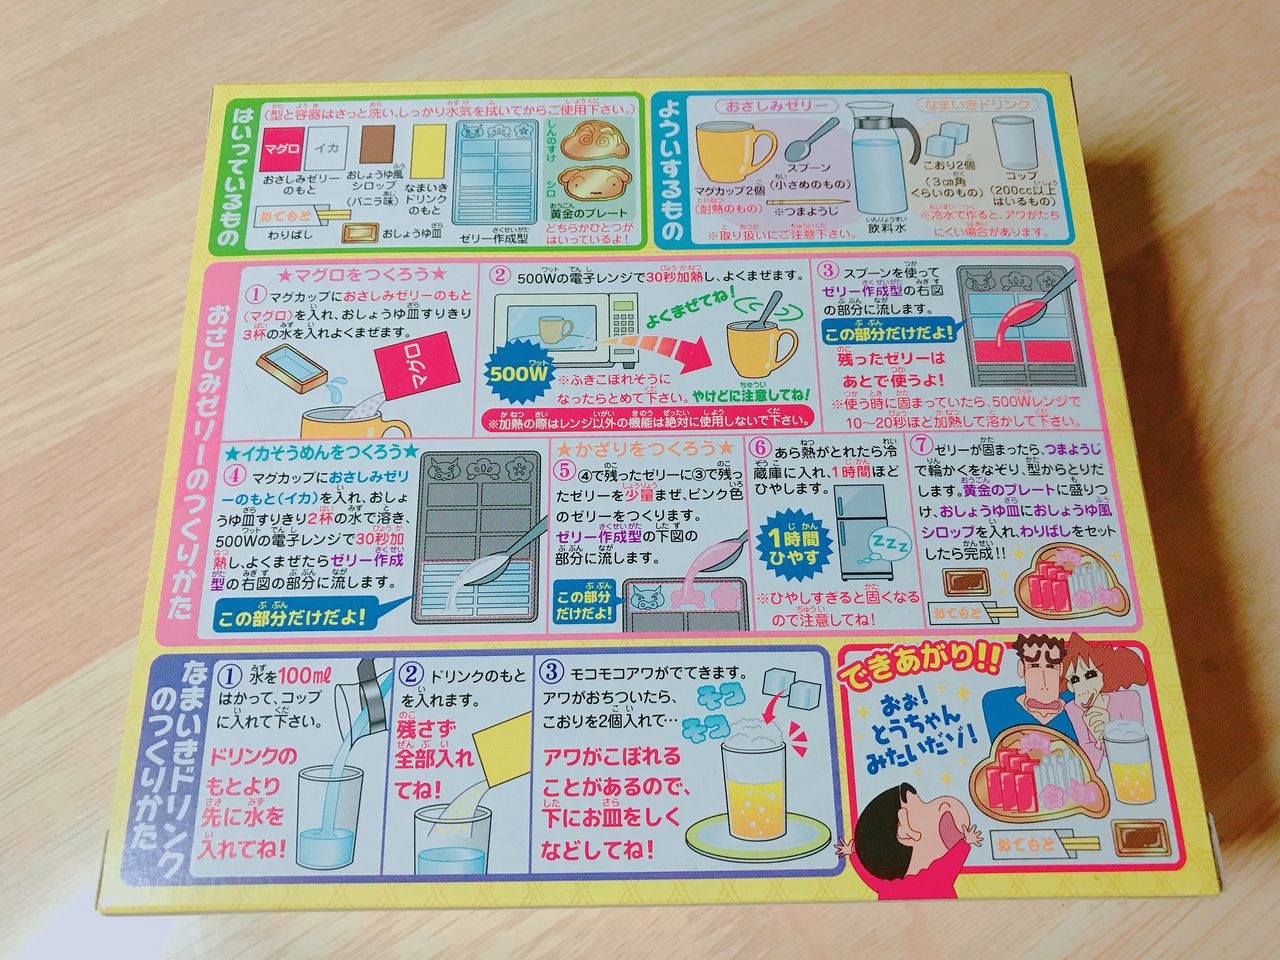 はいっているもの
(型と容器はさっと洗い、しっかり水気を拭いてからご使用下さい。)
マグロ
イカ
おさしみゼリー
のもと
おしょうゆ風
シロップ
(バニラ味)
なまいき
ドリンク
のもと
ゼリー作成型
しんのすけ
シロ
黄金のプレート
どちらかひとつが
はいっているよ!
おてもと
わりばし
おしょうゆ皿
よういするもの
おさしみゼリー
マグカップ2個
(耐熱のもの)
スプーン
(小さめのもの)
※つまようじ
※取り扱いにご注意下さい。
飲料水
なまいきドリンク
こおり2個
(3cm角
くらいのもの)
コップ
(200cc以上
はいるもの)
※冷水で作ると、アワがたち
にくい場合があります。
おさしみゼリーのつくりかた
★マグロをつくろう★
① マグカップにおさしみゼリーのもと
(マグロ)を入れ、おしょうゆ皿すりきり
3杯の水を入れよくまぜます。
マグロ
② 500Wの電子レンジで30秒加熱し、よくまぜます。
よくまぜてね!
500W
※ふきこぼれそうに
なったらとめて下さい。
やけどに注意してね!
※加熱の際はレンジ以外の機能は絶対に使用しないで下さい。
③ スプーンを使って
ゼリー作成型の右図
の部分に流します。
この部分だけだよ!
残ったゼリーは
あとで使うよ!
※使う時に固まっていたら、500Wレンジで
10〜20秒ほど加熱して溶かして下さい。
★イカそうめんをつくろう★
④ マグカップにおさしみゼリ
ーのもと(イカ)を入れ、おしょ
うゆ皿すりきり2杯の水で溶き、
500Wの電子レンジで30秒加
熱し、よくまぜたらゼリー作成
型の右図の部分に流します。
この部分だけだよ!
★かざりをつくろう★
⑤ ④で残ったゼリーに③で残っ
たゼリーを少量まぜ、ピンク色
のゼリーをつくります。
ゼリー作成型の下図の
部分に流します。
この部分
だけだよ!
⑥ あら熱がとれたら冷
蔵庫に入れ、1時間ほど
ひやします。
1時間
ひやす
ZZZ
※ひやしすぎると固くなる
ので注意してね!
⑦ ゼリーが固まったら、つまようじ
で輪かくをなぞり、型からとりだ
します。黄金のプレートに盛りつ
け、おしょうゆ皿におしょうゆ風
シロップを入れ、わりばしをセット
したら完成!!
おてもと
なまいきドリンク
のつくりかた
① 水を100mℓ
はかって、コップ
に入れて下さい。
ドリンクの
もとより
先に水を
入れてね!
② ドリンクのもと
を入れます。
残さず
全部入れ
てね!
③ モコモコアワがでてきます。
アワがおちついたら、
こおりを2個入れて…
モコ
モコ
アワがこぼれる
ことがあるので、
下にお皿をしく
などしてね!
できあがり!!
おぉ!
とうちゃん
みたいだゾ!
おてもと